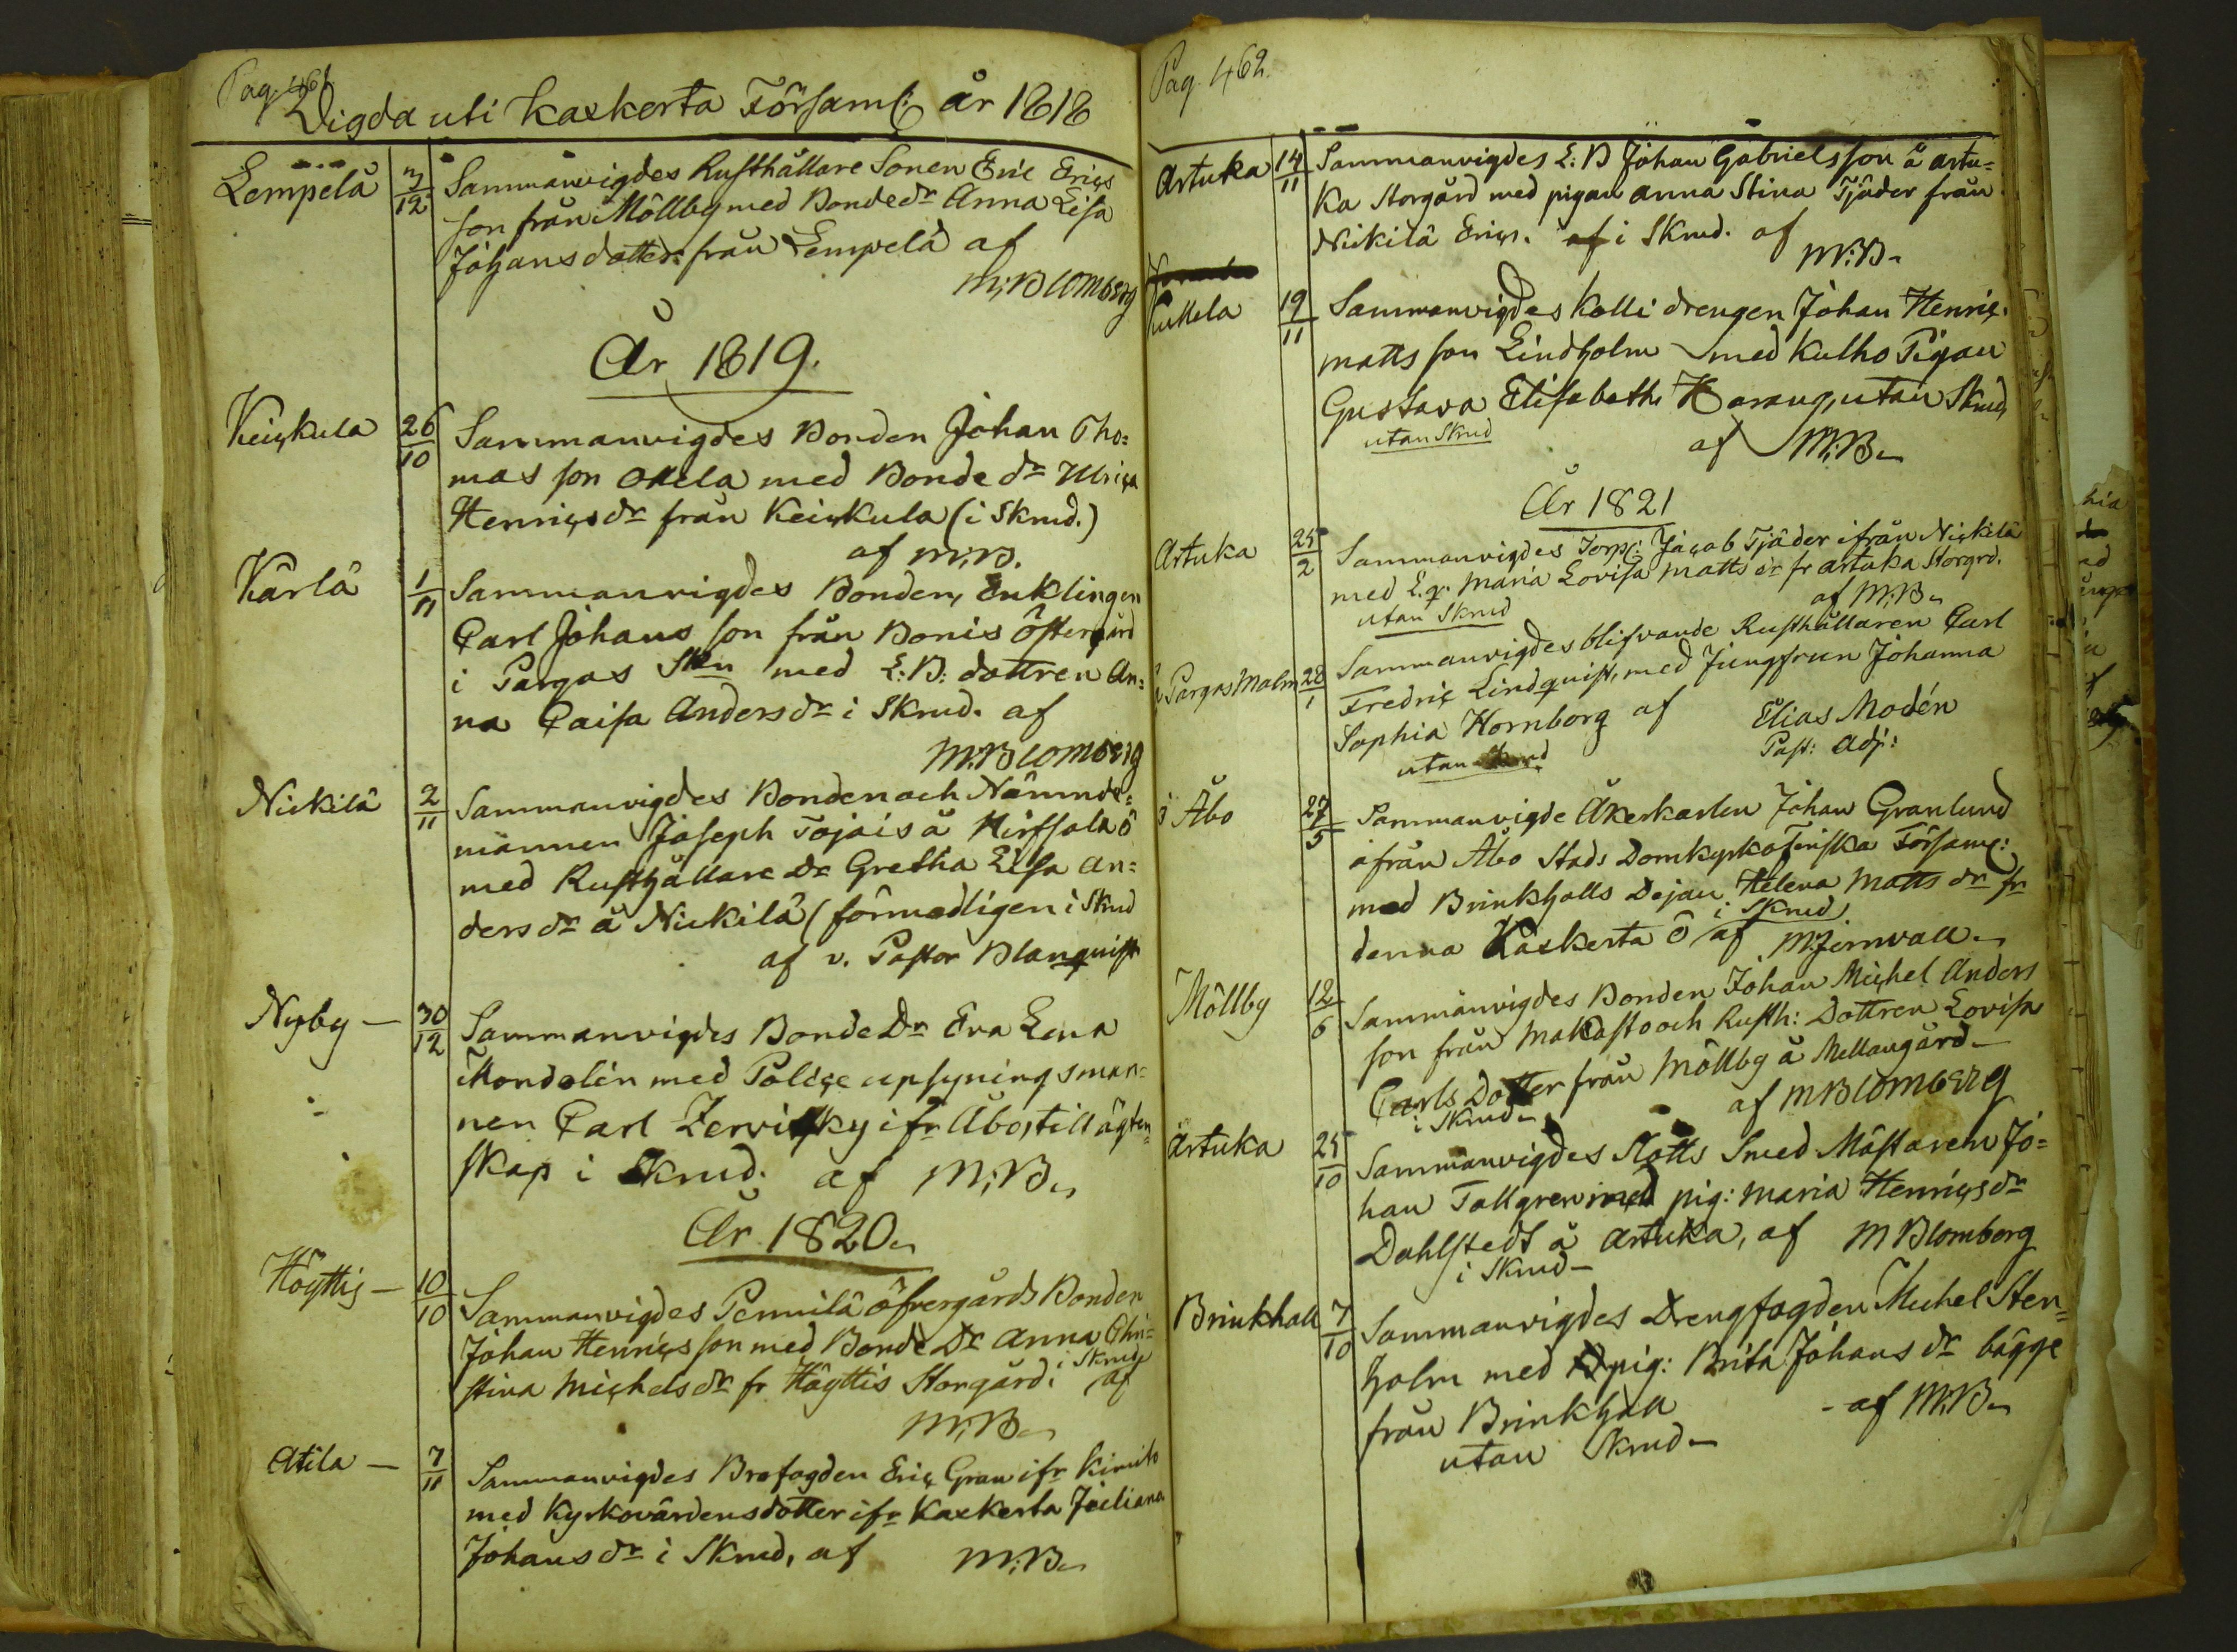 Pag. 461
Wigda uti Kaxkerta Församl: år 1818
Lempelä 3/12 Sammanvigdes Rusthållare Sonen Eric Erics
son från Möllby med Bonde dr Anna Lisa
Johansdotter från Lempelä af
M:Blomberg
År 1819.
Keickula 26/10 Sammanvigdes Bonden Johan Tho=
mas son med Bonde dr Ulrica
Henrics dr från Keickula (i Skrud.)
af M:B.
Kärlä 1/11 Sammanvigdes Bonden, Enklingen
Carl Johans son från Bonis Östergård
i Pargas Skn med L:B: dottren An=
na Caisa Anders dr i Skrud. af
M:Blomberg
Nickilä 2/11 Sammanvigdes Bonden och Nämnde=
mannen Joseph Tojais å Hirfsala ö
med Rusthållare Dr Gretha Lisa An=
ders dr å Nickilä (förmodligen i Skrud
af v. Pastor Blanquist
Nyby — 30/12 Sammanvigdes Bonde Dr Eva Lena
Mondelin med Police upsyningsman=
nen Carl ifr Åbo, till ägten=
skap i Skrud. af M:B.
År 1820.
Höyttis — 10/10 Sammanvigdes Pennilä öfvergårds Bonden
Johan Henrics son med Bonde Dr Anna Chri=
stina Michels dr fr Höyttis Storgård i Skrud af
M:B.
Atila — 7/11 Sammanvigdes Brofogden Eric Gran ifr Kimito
med Kyrkovärdens dotter ifr Kaxkerta Juliana
Johans dr i Skrud, af M:B.
Pag. 462.
Artuka 14/11 Sammanvigdes L:B Johan Gabriels son å Artu=
ka Storgård med pigan Anna Stina Tjäder från
Nickilä Erics. af i Skrud. af M:B.
19/11 Sammanvigdes Kalli drengen Johan Henric
Matts son Lindholm med Kulho Pigan
Gustava Elisabeth utan Skrud,
utan Skrud af M:B.
År 1821
Artuka 25/2 Sammanvigdes Torp: Jacob Tjäder ifrån Nickilä
med L.p. Maria Lovisa Matts dr fr Artuka Storgrd.
utan Skrud af M:B.
i Pargas Malm 28/1 Sammanvigdes blifvande Rusthållaren Carl
Fredric Lindquist, med Jungfrun Johanna
Sophia Hornborg af Elias Modén
utan Skrud Past: Adj:
i Åbo 27/5 Sammanvigde Åkerkarlen Johan Granlund
ifrån Åbo Stads Domkyrko Finska Församl:
med Brinkhalls Dejan Helena Matts dr fr
i Skrud
denna Kaskerta ö af M:Jernvall.
Möllby 12/6 Sammanvigdes Bonden Johan Michel Anders
son från Makasto och Rusth: Dottren Lovisa
Carls Dotter från Möllby å Mellangård —
i Skrud. af M Blomberg
Artuka 25/10 Sammanvigdes Slotts Smed Mästaren Jo=
han Tallgren med pig: Maria Henrics dr
Dahlstedt å Artuka, af M Blomberg
i Skrud —
Brinkhall 7/10 Sammanvigdes Drengfogden Michel Sten=
holm med pig: Brita Johans dr bägge
från Brinkhall - af M:B.
utan Skrud —